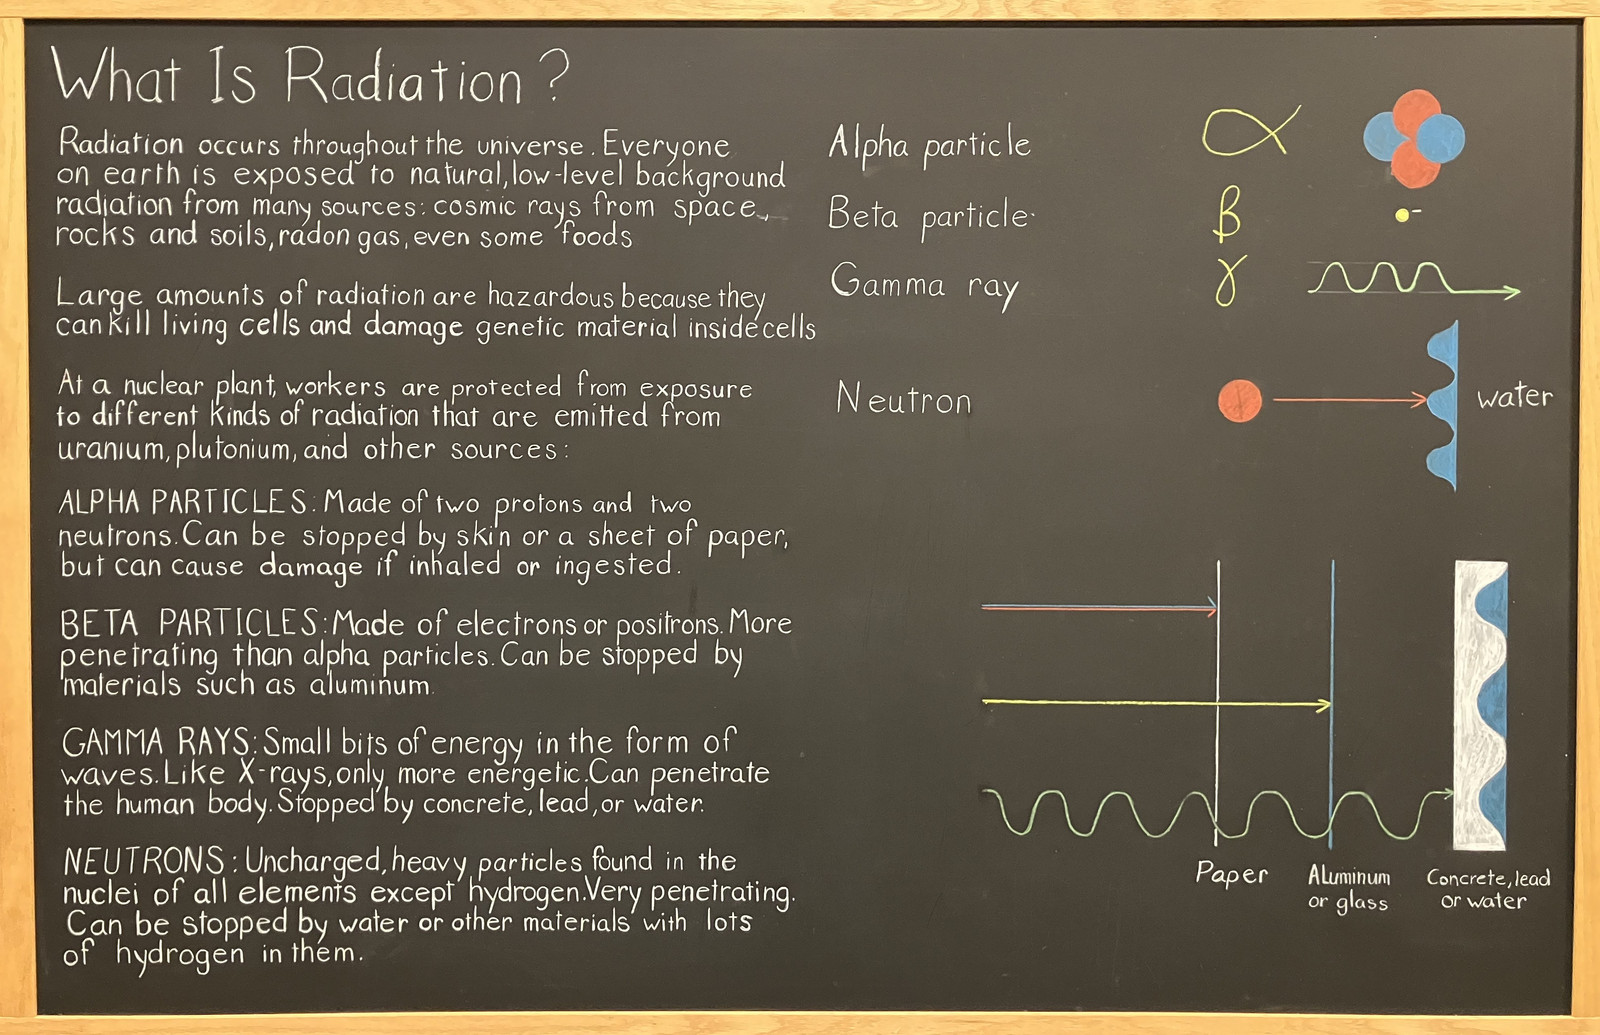 What Is Radiation?
Radiation occurs throughout the universe. Everyone
on earth is exposed to natural, low-level background
radiation from many sources: cosmic rays from space,
rocks and soils, radon gas, even some foods
Large amounts of radiation are hazardous because they
can kill living cells and damage genetic material inside cells
At a nuclear plant, workers are protected from exposure
to different kinds of radiation that are emitted from
uranium, plutonium, and other sources:
ALPHA PARTICLES: Made of two protons and two
neutrons. Can be stopped by skin or a sheet of paper,
but can cause damage if inhaled or ingested.
BETA PARTICLES: Made of electrons or positrons. More
penetrating than alpha particles. Can be stopped by
materials such as aluminum.
GAMMA RAYS: Small bits of energy in the form of
waves. Like X-rays, only more energetic. Can penetrate
the human body. Stopped by concrete, lead, or water.
NEUTRONS: Uncharged, heavy particles found in the
nuclei of all elements except hydrogen. Very penetrating.
Can be stopped by water or other materials with lots
of hydrogen in them.
Alpha particle α
Beta particle β -
Gamma ray γ
Neutron water
Paper
Aluminum
or glass
Concrete, lead
or water